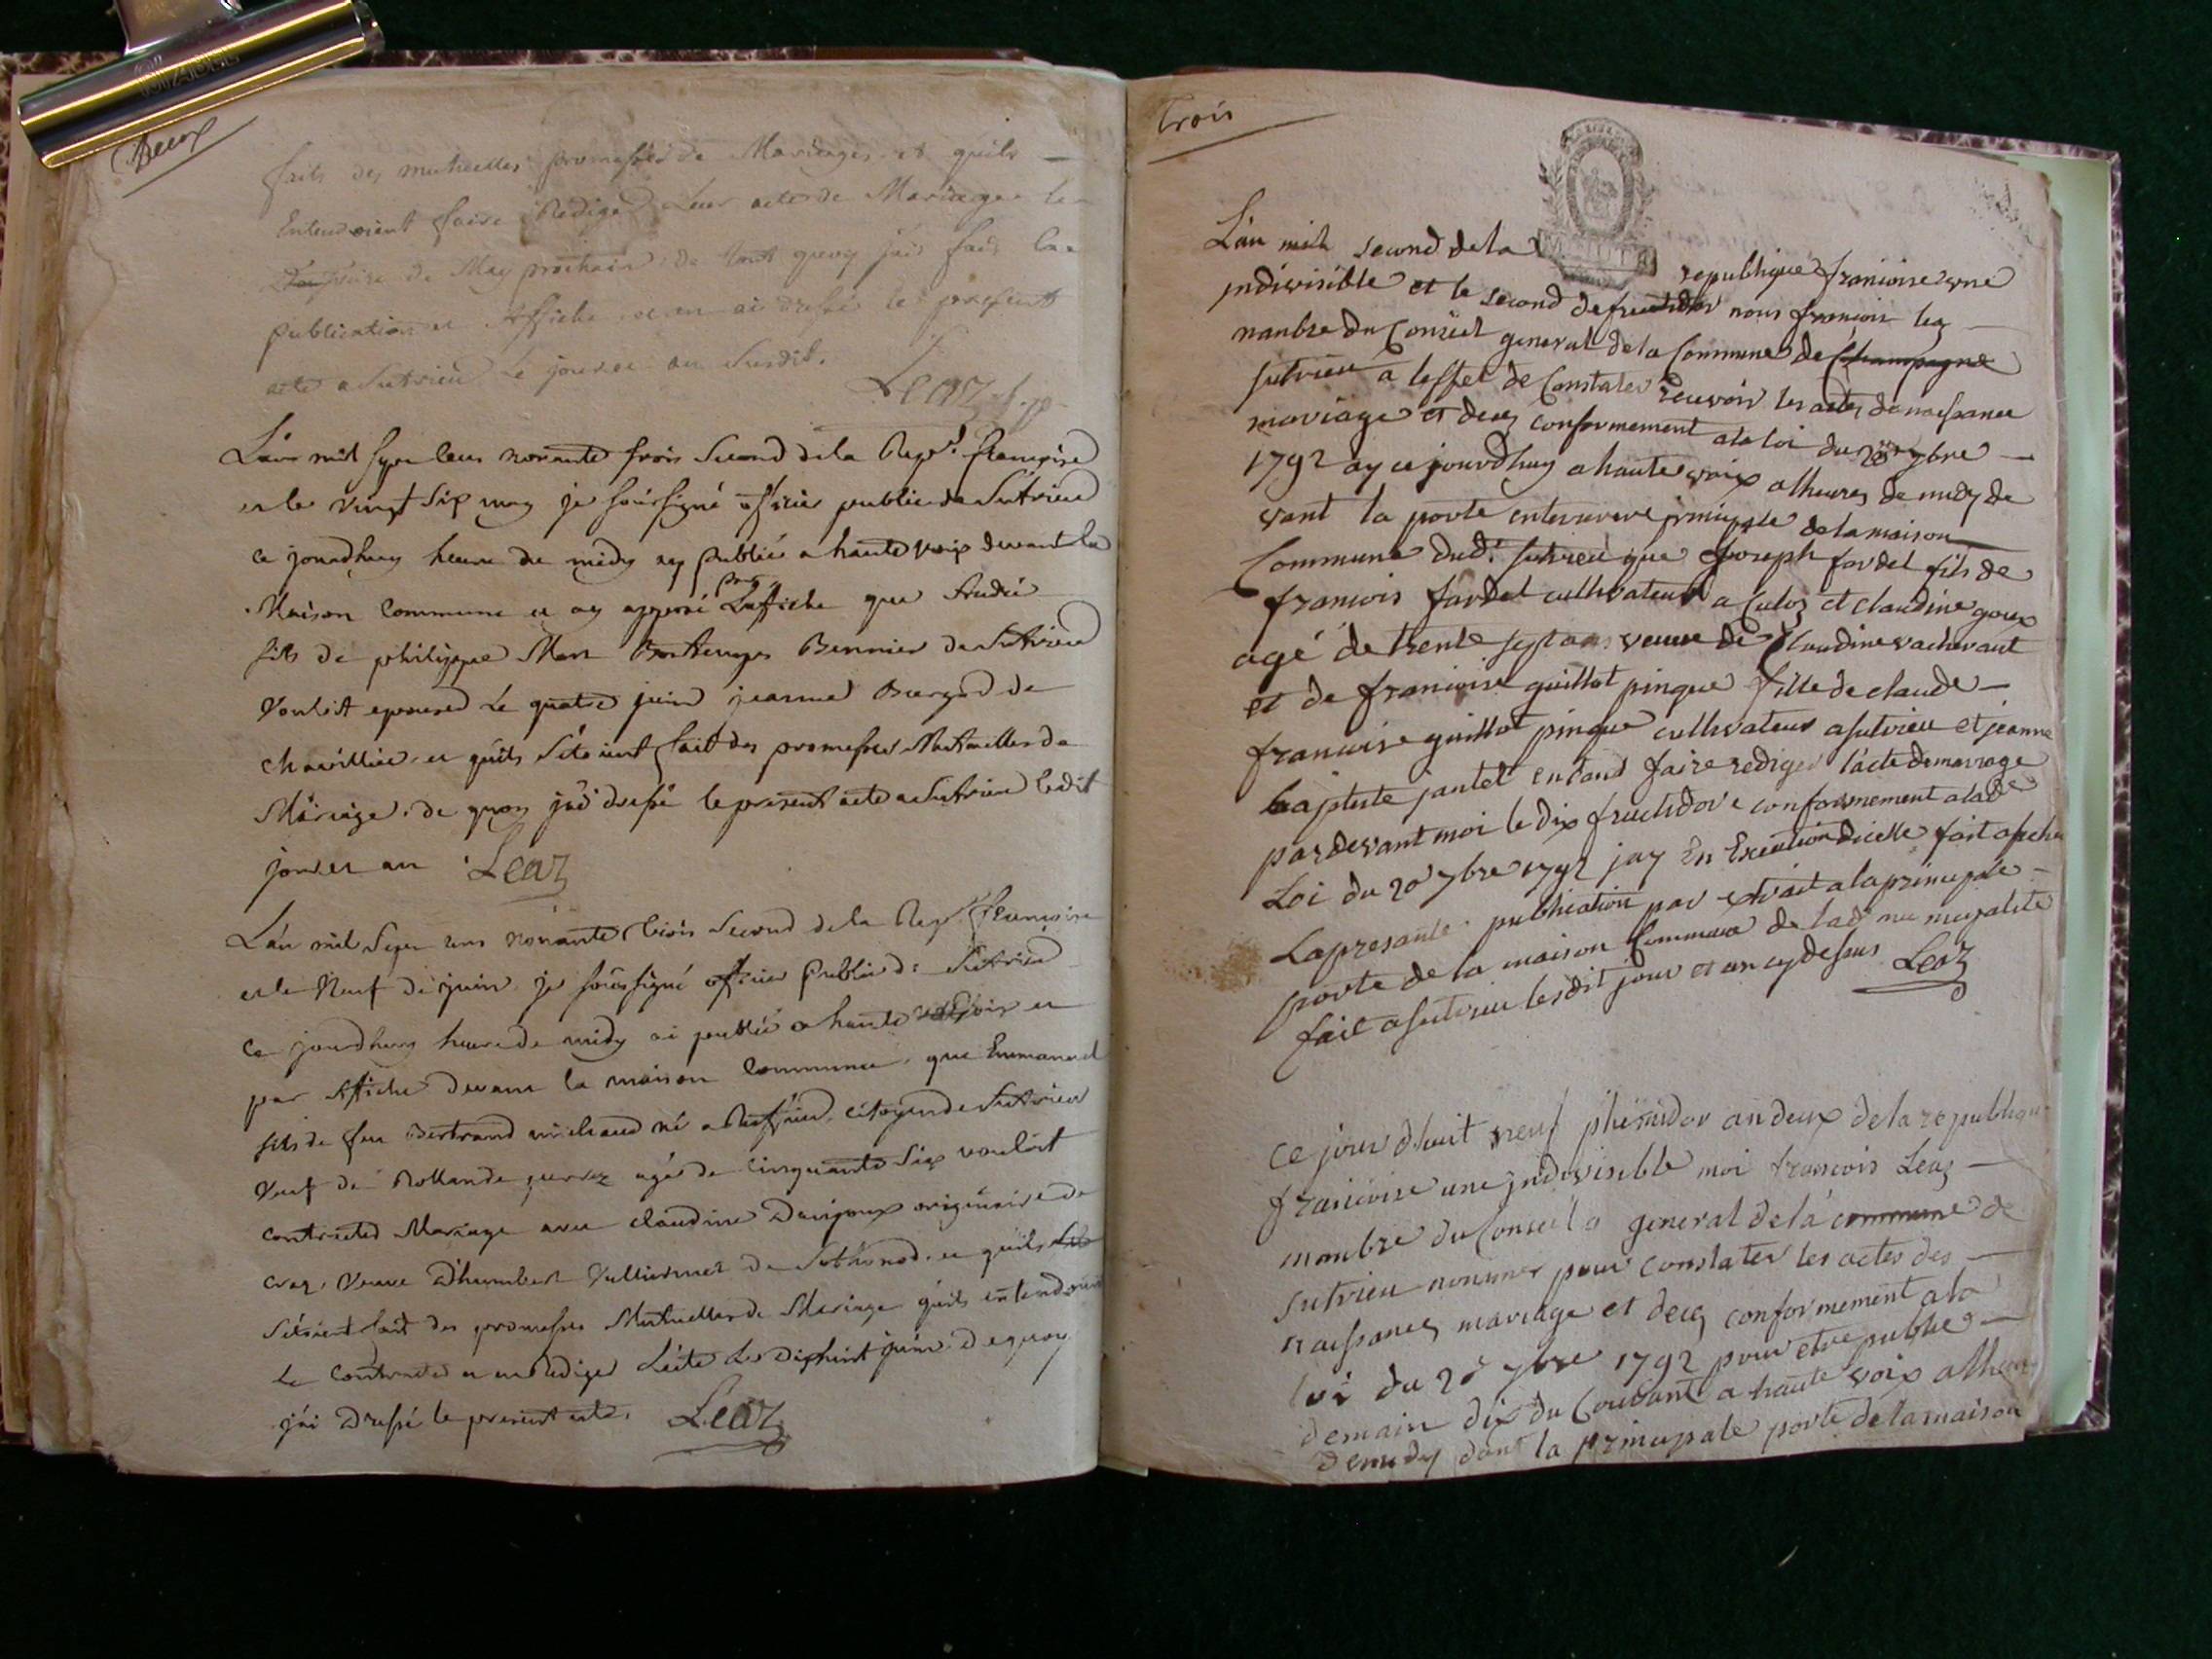 Deux
faits des mutuelles promesses de Mariages et quils
Entendoient faire Rediger Leur acte de Mariage le
de May prochain de tout quoy j'ais fait la
publication et Affiche et en ai dressé le present
acte a Sutrieu le jour et an Susdit.
Leaz
L'an mil Sept cens nonante trois Second de la Rep.e francoise
et le vingt Six may je soussigné officier public de Sutrieu
ce jourdhuy heure de midy ay publié a haute voix devant la
Maison Commune et ay apposé par L'affiche que
fils de philippe de Sutrieu
Vouloit epouser Le quatre juin jeanne de
et quils S'étoient fait des promesses Mutuelles de
Mariage. de quoy j'ai dressé le present acte a Sutrieu ledit
jour et an Leaz
L'an mil Sept cens nonante trois Second de la Rep. francoise
et le Neuf de juin je soussigné officier Public de Sutrieu
ce jourdhuy heure de midy ai publié a haute voix et
par Affiche devant la maison Commune, que Emmanuel
fils de feu Bertrand michaud né a citoyen de Sutrieu
Veuf de Rollande agé de Cinquante Six vouloit
contracter Mariage avec claudine originaire de
Veuve D'humbert de Sothonod. et quils
S'étoient fait des promesses Mutuelles de Mariage quils entendoient
Le Contracter et en Rediger L'acte Le Dixhuit juin De quoy
j'ai Dressé le present acte. Leaz
Trois
L'an second de la republique francoise une
indivisible et le second de fructidor nous francois leaz
manbre du Conseil general de la Commune de Champagne
sutrieu a leffet de Constater recevoir les actes de naissance
mariage et deces conformement a la loi du 20 7bre
1792 ay ce jourdhuy a haute voix a lheures de midy de
vant la porte principale de la maison
Commune dud.t sutrieu que Joseph fardel fils de
francois fardel cultivateur a Culoz et claudine goux
agé de trente sept ans veuve de Claudine vachevaut
et de francoise guillot pingue fille de claude
francoise guillot pingue cultivateur a sutrieu et jeanne
baptiste jantet entand faire rediger l'acte de mariage
pardevant moi le dix fructidor conformement a lad.e
Loi du 20 7bre 1792 jay En Execution dicelle fait afiche
La presante publication par extrait a la principale
porte de la maison Commune de lad.
fait a sutrieu lesdit jour et an cy dessus Leaz
Ce jour dhuit neuf thérmidor an deux de la republique
francoise une indivisible moi francois Leaz
manbre du Conseil general de la commune de
sutrieu nommer pour constater les actes des
naissances mariage et deces conformement a la
loi du 20 7bre 1792 pour etre publié
demain dix du Courant a haute voix a lheure
de midy la principale porte de la maison